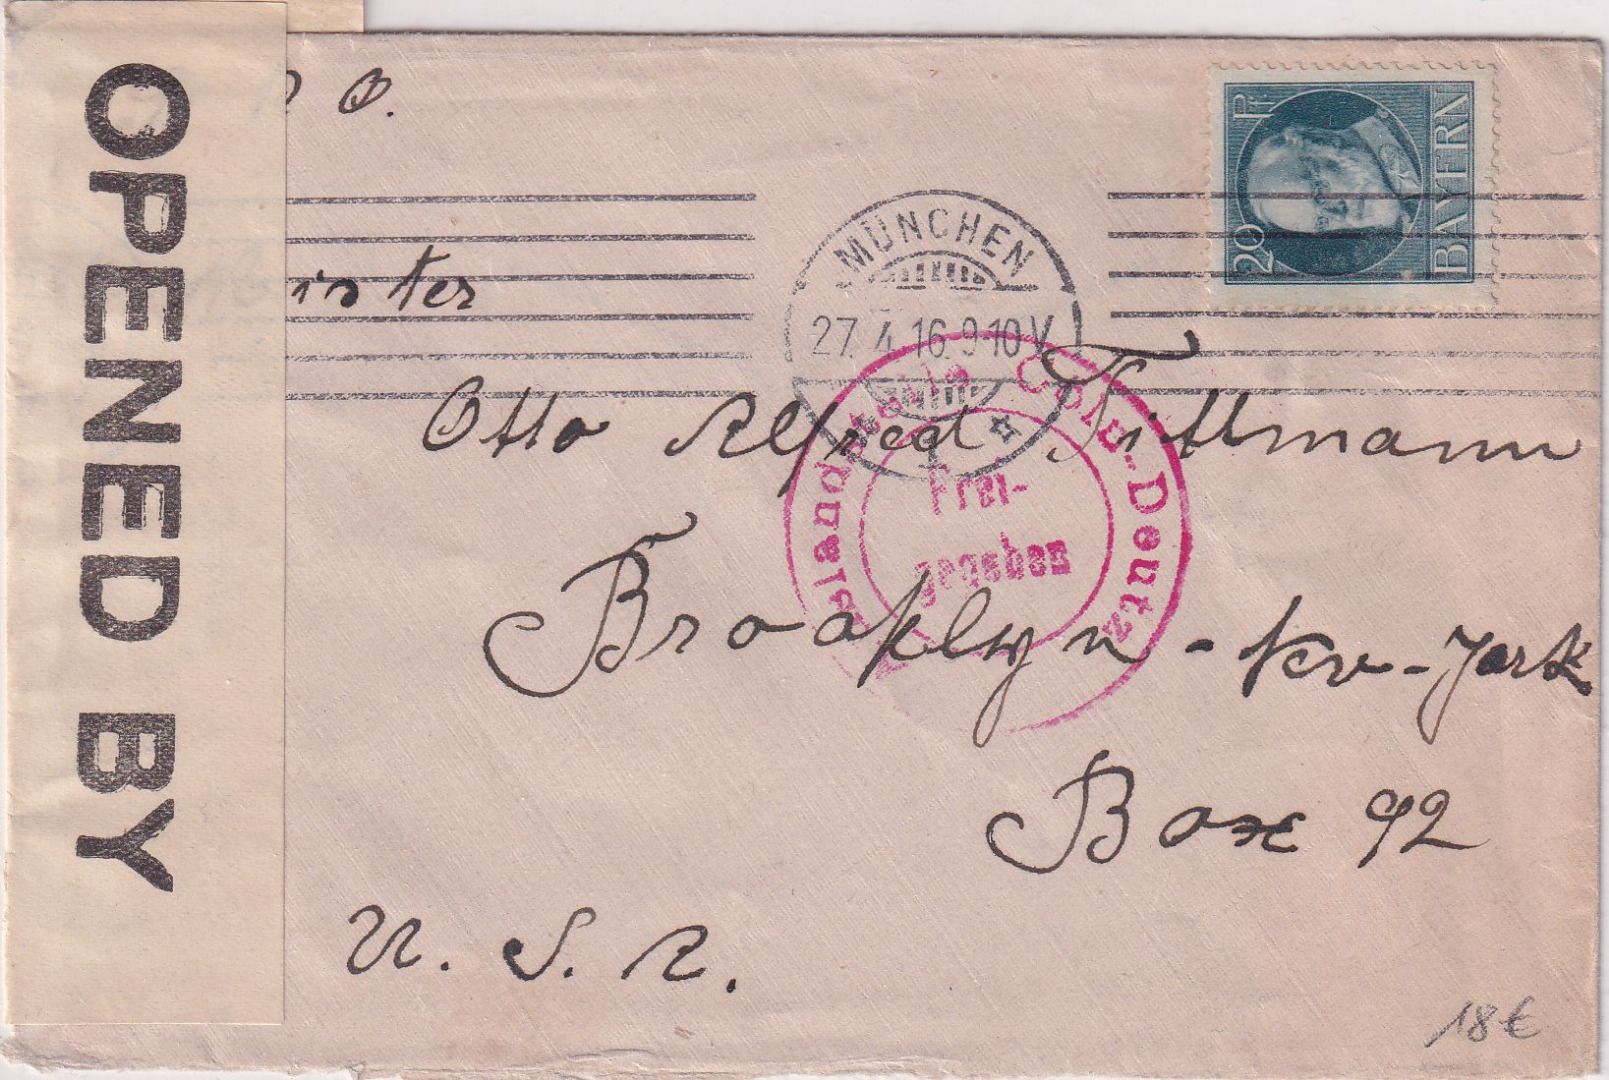 OPENED BY
O.
ister
20 Pf
BAYERN
MÜNCHEN
27. 4. 16. 9-10 V.
Auslandsstelle Cöln-Deutz
Frei-
gegeben
Otto Alfred Tittmann
Brooklyn - New-York
Box 92
U. S. A.
18 €